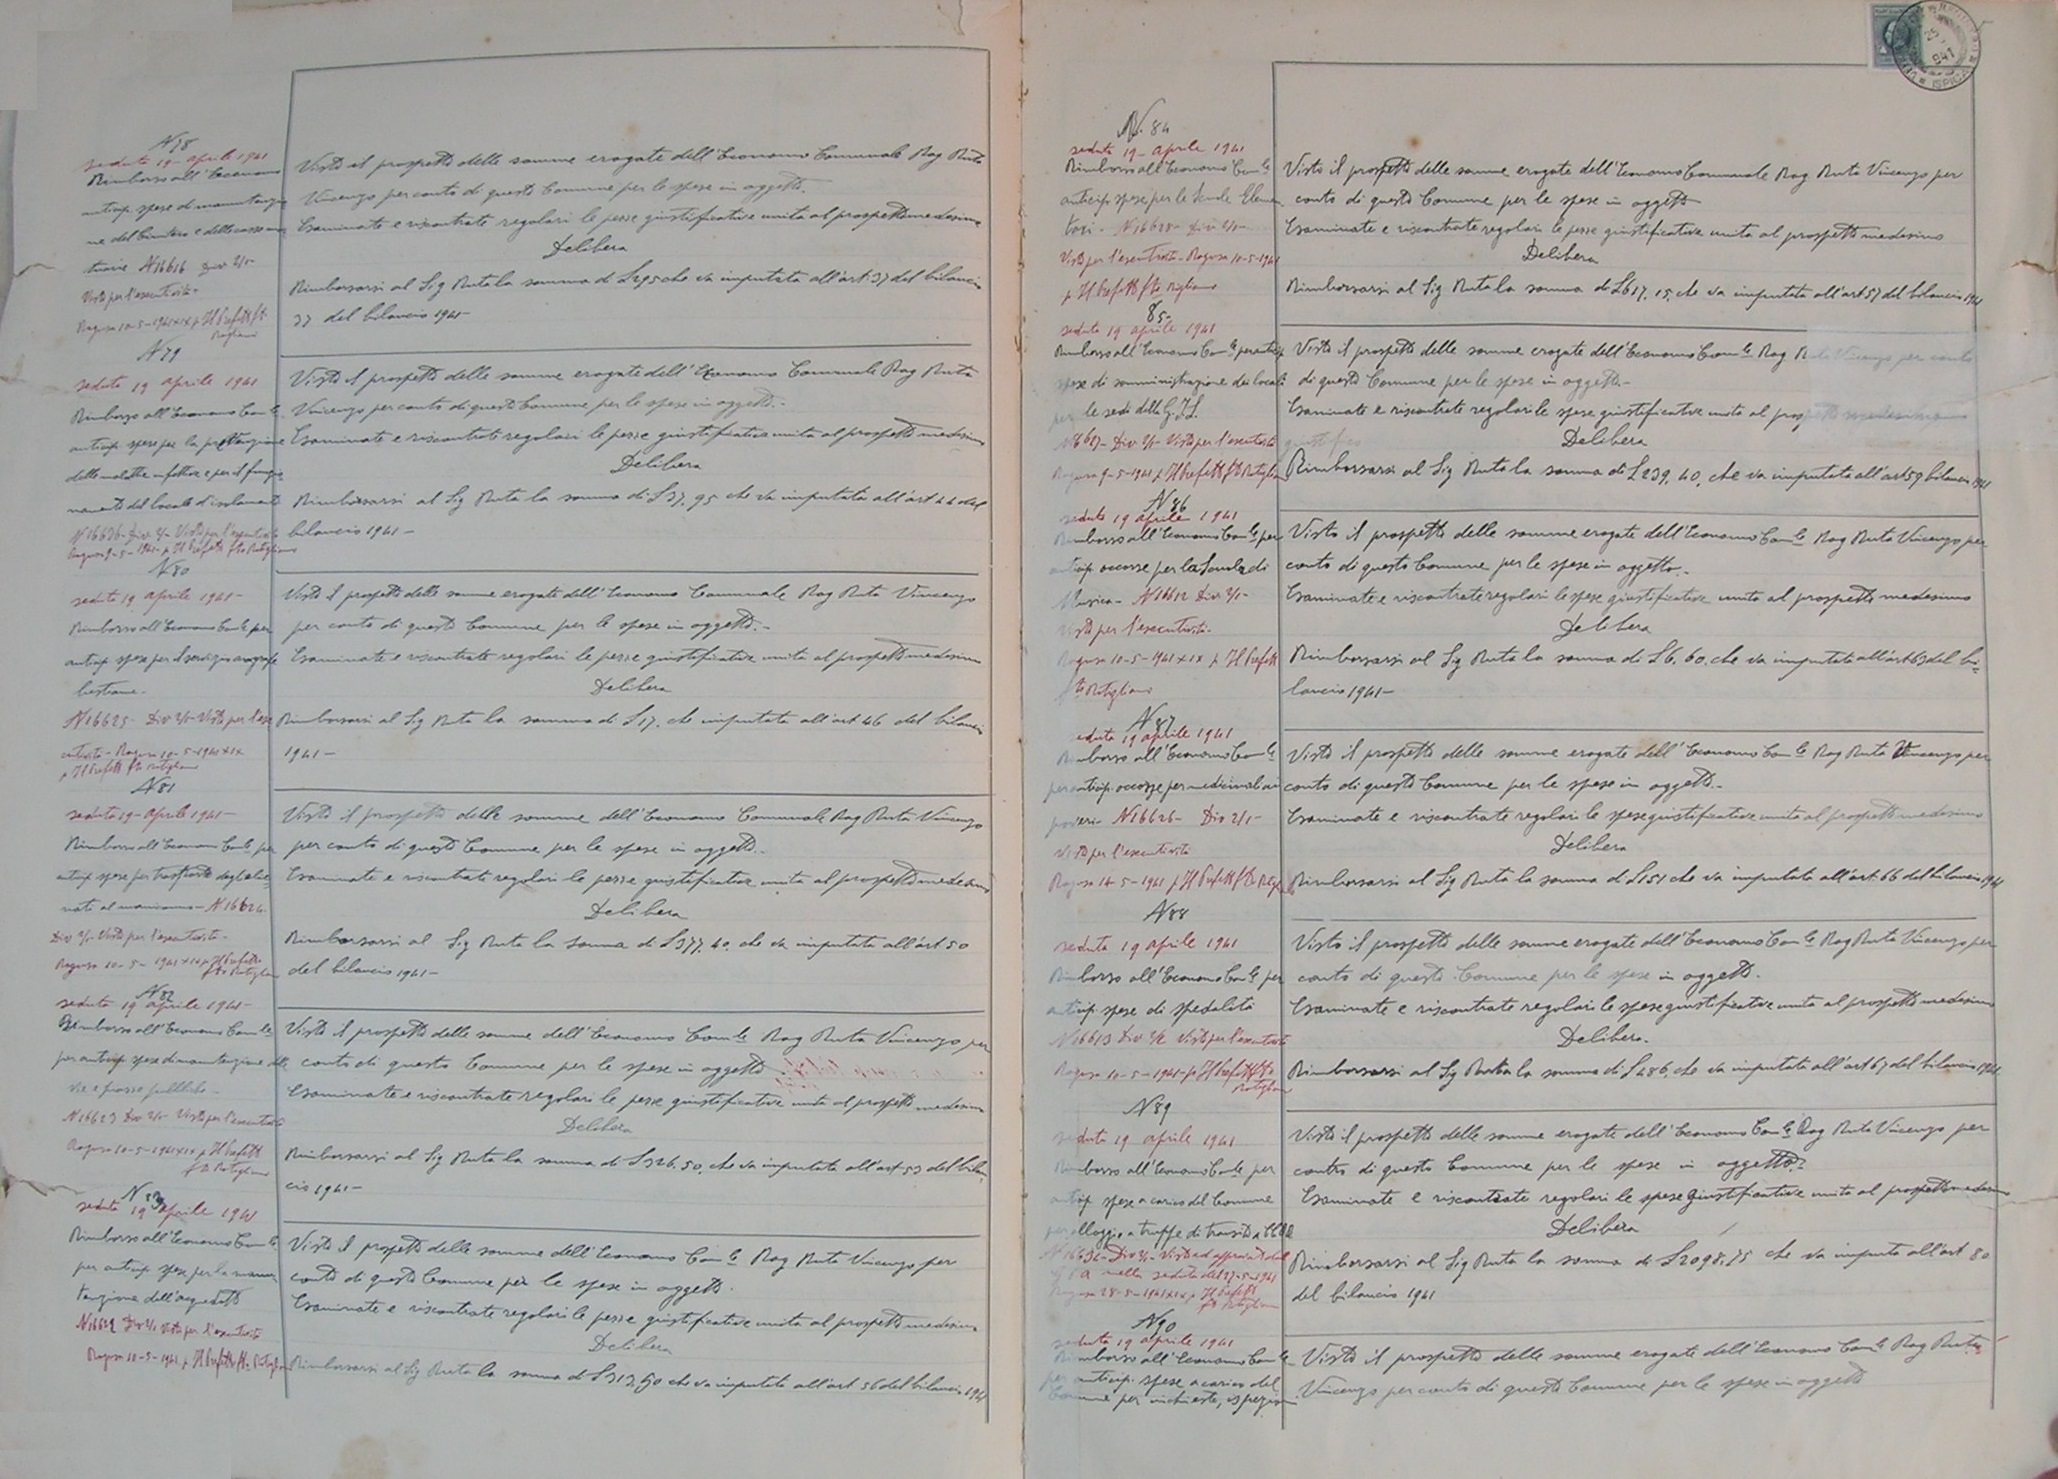 N 78
seduta 19 - aprile 1941
Rimborso all'Economo
anticip. spese di manutenzio
ne del Cimitero e delle casse mor
tuarie N 16616 Div 2/1-
Visto per l'esecutività-
Ragusa 10-5-1941 XIX p Il Prefetto fto
Visto il prospetto delle somme erogate dell'Economo Comunale Rag Ruta
Vincenzo per conto di questo Comune per le spese in oggetto.
Esaminate e riscontrate regolari le pezze giustificative unite al prospetto medesimo
Delibera
Rimborsarsi al Sig Ruta la somma di L 295 che va imputata all'art 37 del bilancio
37 del bilancio 1941-
N 79
seduta 19 aprile 1941
Rimborso all'Economo Com.le
anticip. spese per la protezione
delle malattie infettive e per il funzio
namento del locale d'isolamento
N 16636- Div 2/1- Visto per l'esecutività
Ragusa 9-5-1941- p Il Prefetto fto Rutigliano
Visto il prospetto delle somme erogate dell'Economo Comunale Rag Ruta
Vincenzo per conto di questo Comune per le spese in oggetto.-
Esaminate e riscontrate regolari le pezze giustificative unite al prospetto medesimo
Delibera
Rimborsarsi al Sig Ruta la somma di L 37,95 che va imputata all'art 44 del
bilancio 1941-
N 80
seduta 19 aprile 1941-
Rimborso all'Economo Com.le per
anticip spese per il servizio anagrafe
bestiame.
N 16625- Div 2/1- Visto per l'ese
cutività- Ragusa 10-5-1941 XIX
p Il Prefetto fto Rutigliano
Visto il prospetto delle somme erogate dell'Economo Comunale Rag Ruta Vincenzo
per conto di questo Comune per le spese in oggetto.-
Esaminate e riscontrate regolari le pezze giustificative unite al prospetto medesimo
Delibera
Rimborsarsi al Sig Ruta la somma di L 17. che imputata all'art 46 del bilancio
1941-
N 81
seduta 19- aprile 1941-
Rimborso all'Economo Com.le per
anticip spese per trasporto degli alie
nati al manicomio- N 16624
Div 2/1- Visto per l'esecutività-
Ragusa 10-5-1941 XIX p Il Prefetto
fto Rutigliano
Visto il prospetto delle somme dell'Economo Comunale Rag Ruta Vincenzo
per conto di questo Comune per le spese in oggetto.-
Esaminate e riscontrate regolari le pezze giustificative unite al prospetto medesimo
Delibera
Rimborsarsi al Sig Ruta la somma di L 377,40, che va imputata all'art 50
del bilancio 1941-
N 82
seduta 19 aprile 1941-
Rimborso all'Economo Com.le
per anticip spese di manutenzione delle
vie e piazze pubbliche-
N 16623 Div 2/1- Visto per l'esecutività
Ragusa 10-5-1941 XIX p Il Prefetto
fto Rutigliano
Visto il prospetto delle somme dell'Economo Com.le Rag Ruta Vincenzo per
conto di questo Comune per le spese in oggetto
Esaminate e riscontrate regolari le pezze giustificative unite al prospetto medesimo
Delibera
Rimborsarsi al Sig Ruta la somma di L 326,50, che va imputata all'art 53 del bilan
cio 1941-
N 83
seduta 19 aprile 1941
Rimborso all'Economo Com.le
per anticip. spese per la manu
tenzione dell'acquedotto
N 16622 Div 2/1 Visto per l'esecutività
Ragusa 10-5-1941 p Il Prefetto fto Rutigliano
Visto il prospetto delle somme dell'Economo Com.le Rag Ruta Vincenzo per
conto di questo Comune per le spese in oggetto.
Esaminate e riscontrate regolari le pezze giustificative unite al prospetto medesimo
Delibera
Rimborsarsi al Sig Ruta la somma di L 313,50 che va imputata all'art 56 del bilancio 1941
N. 84
seduta 19- aprile 1941
Rimborso all'Economo Com.le
anticip spese per le Scuole Elemen
tari- N 16628- Div 2/1-
Visto per l'esecutività- Ragusa 10-5-1941
p Il Prefetto fto Rutigliano
Visto il prospetto delle somme erogate dell'Economo Comunale Rag. Ruta Vincenzo per
conto di questo Comune per le spese in oggetto
Esaminate e riscontrate regolari le pezze giustificative unite al prospetto medesimo
Delibera
Rimborsarsi al Sig Ruta la somma di L 617,15, che va imputata all'art 57 del bilancio 1941
85-
seduta 19 aprile 1941
Rimborso all'Economo Com.le per anticip
spese di somministrazione dei locali
per le sedi della G.I.L.
N 16627- Div 2/1- Visto per l'esecutività
Ragusa 9-5-1941 p Il Prefetto fto Rutigliano
Visto il prospetto delle somme erogate dell'Economo Com.le Rag Ruta Vincenzo per conto
di questo Comune per le spese in oggetto.-
Esaminate e riscontrate regolari le spese giustificative unite al prospetto medesimo
Delibera
Rimborsarsi al Sig Ruta la somma di L 239,40, che va imputata all'art 59 bilancio 1941
N 86
seduta 19 aprile 1941
Rimborso all'Economo Com.le per
anticip occorse per la Scuola di
Musica- N 16612 Div 2/1-
Visto per l'esecutività-
Ragusa 10-5-1941 XIX p Il Prefetto
fto Rutigliano
Visto il prospetto delle somme erogate dell'Economo Com.le Rag Ruta Vincenzo per
conto di questo Comune per le spese in oggetto.-
Esaminate e riscontrate regolari le spese giustificative unite al prospetto medesimo
Delibera
Rimborsarsi al Sig Ruta la somma di L 6,60, che va imputata all'art 63 del bi-
lancio 1941-
N 87
seduta 19 aprile 1941
Rimborso all'Economo Com.le
per anticip. occorse per medicinali ai
poveri- N 16626- Div 2/1-
Visto per l'esecutività
Ragusa 14-5-1941 p Il Prefetto fto
Visto il prospetto delle somme erogate dell'Economo Com.le Rag Ruta Vincenzo per
conto di questo Comune per le spese in oggetto.-
Esaminate e riscontrate regolari le spese giustificative unite al prospetto medesimo
Delibera
Rimborsarsi al Sig Ruta la somma di L 151 che va imputata all'art. 66 del bilancio 1941
N 88
seduta 19 aprile 1941
Rimborso all'Economo Com.le per
anticip spese di spedalità
N 16613 Div 2/1 Visto per l'esecutività
Ragusa 10-5-1941- p Il Prefetto fto
Rutigliano
Visto il prospetto delle somme erogate dell'Economo Com.le Rag Ruta Vincenzo per
conto di questo Comune per le spese in oggetto.
Esaminate e riscontrate regolari le spese giustificative unite al prospetto medesimo
Delibera.
Rimborsarsi al Sig Ruta la somma di L 486, che va imputata all'art 67 del bilancio 1941
N 89
seduta 19 aprile 1941
Rimborso all'Economo Com.le per
anticip spese a carico del Comune
per alloggio a truppe di transito
N 16634- Div 2/1- Visto ed approvato dalla
G P A nella seduta del 27-5-1941
Ragusa 28-5-1941 XIX p Il Prefetto
fto Rutigliano
Visto il prospetto delle somme erogate dell'Economo Com.le Rag Ruta Vincenzo per
conto di questo Comune per le spese in oggetto
Esaminate e riscontrate regolari le spese giustificative unite al prospetto medesimo
Delibera
Rimborsarsi al Sig Ruta la somma di L 2098,75 che va imputa all'art 80
del bilancio 1941
N 90
seduta 19 aprile 1941
Rimborso all'Economo Com.le
per anticip. spese a carico del
Comune per inchieste, ispezioni
Visto il prospetto delle somme erogate dell'Economo Com.le Rag Ruta
Vincenzo per conto di questo Comune per le spese in oggetto
ISPICA